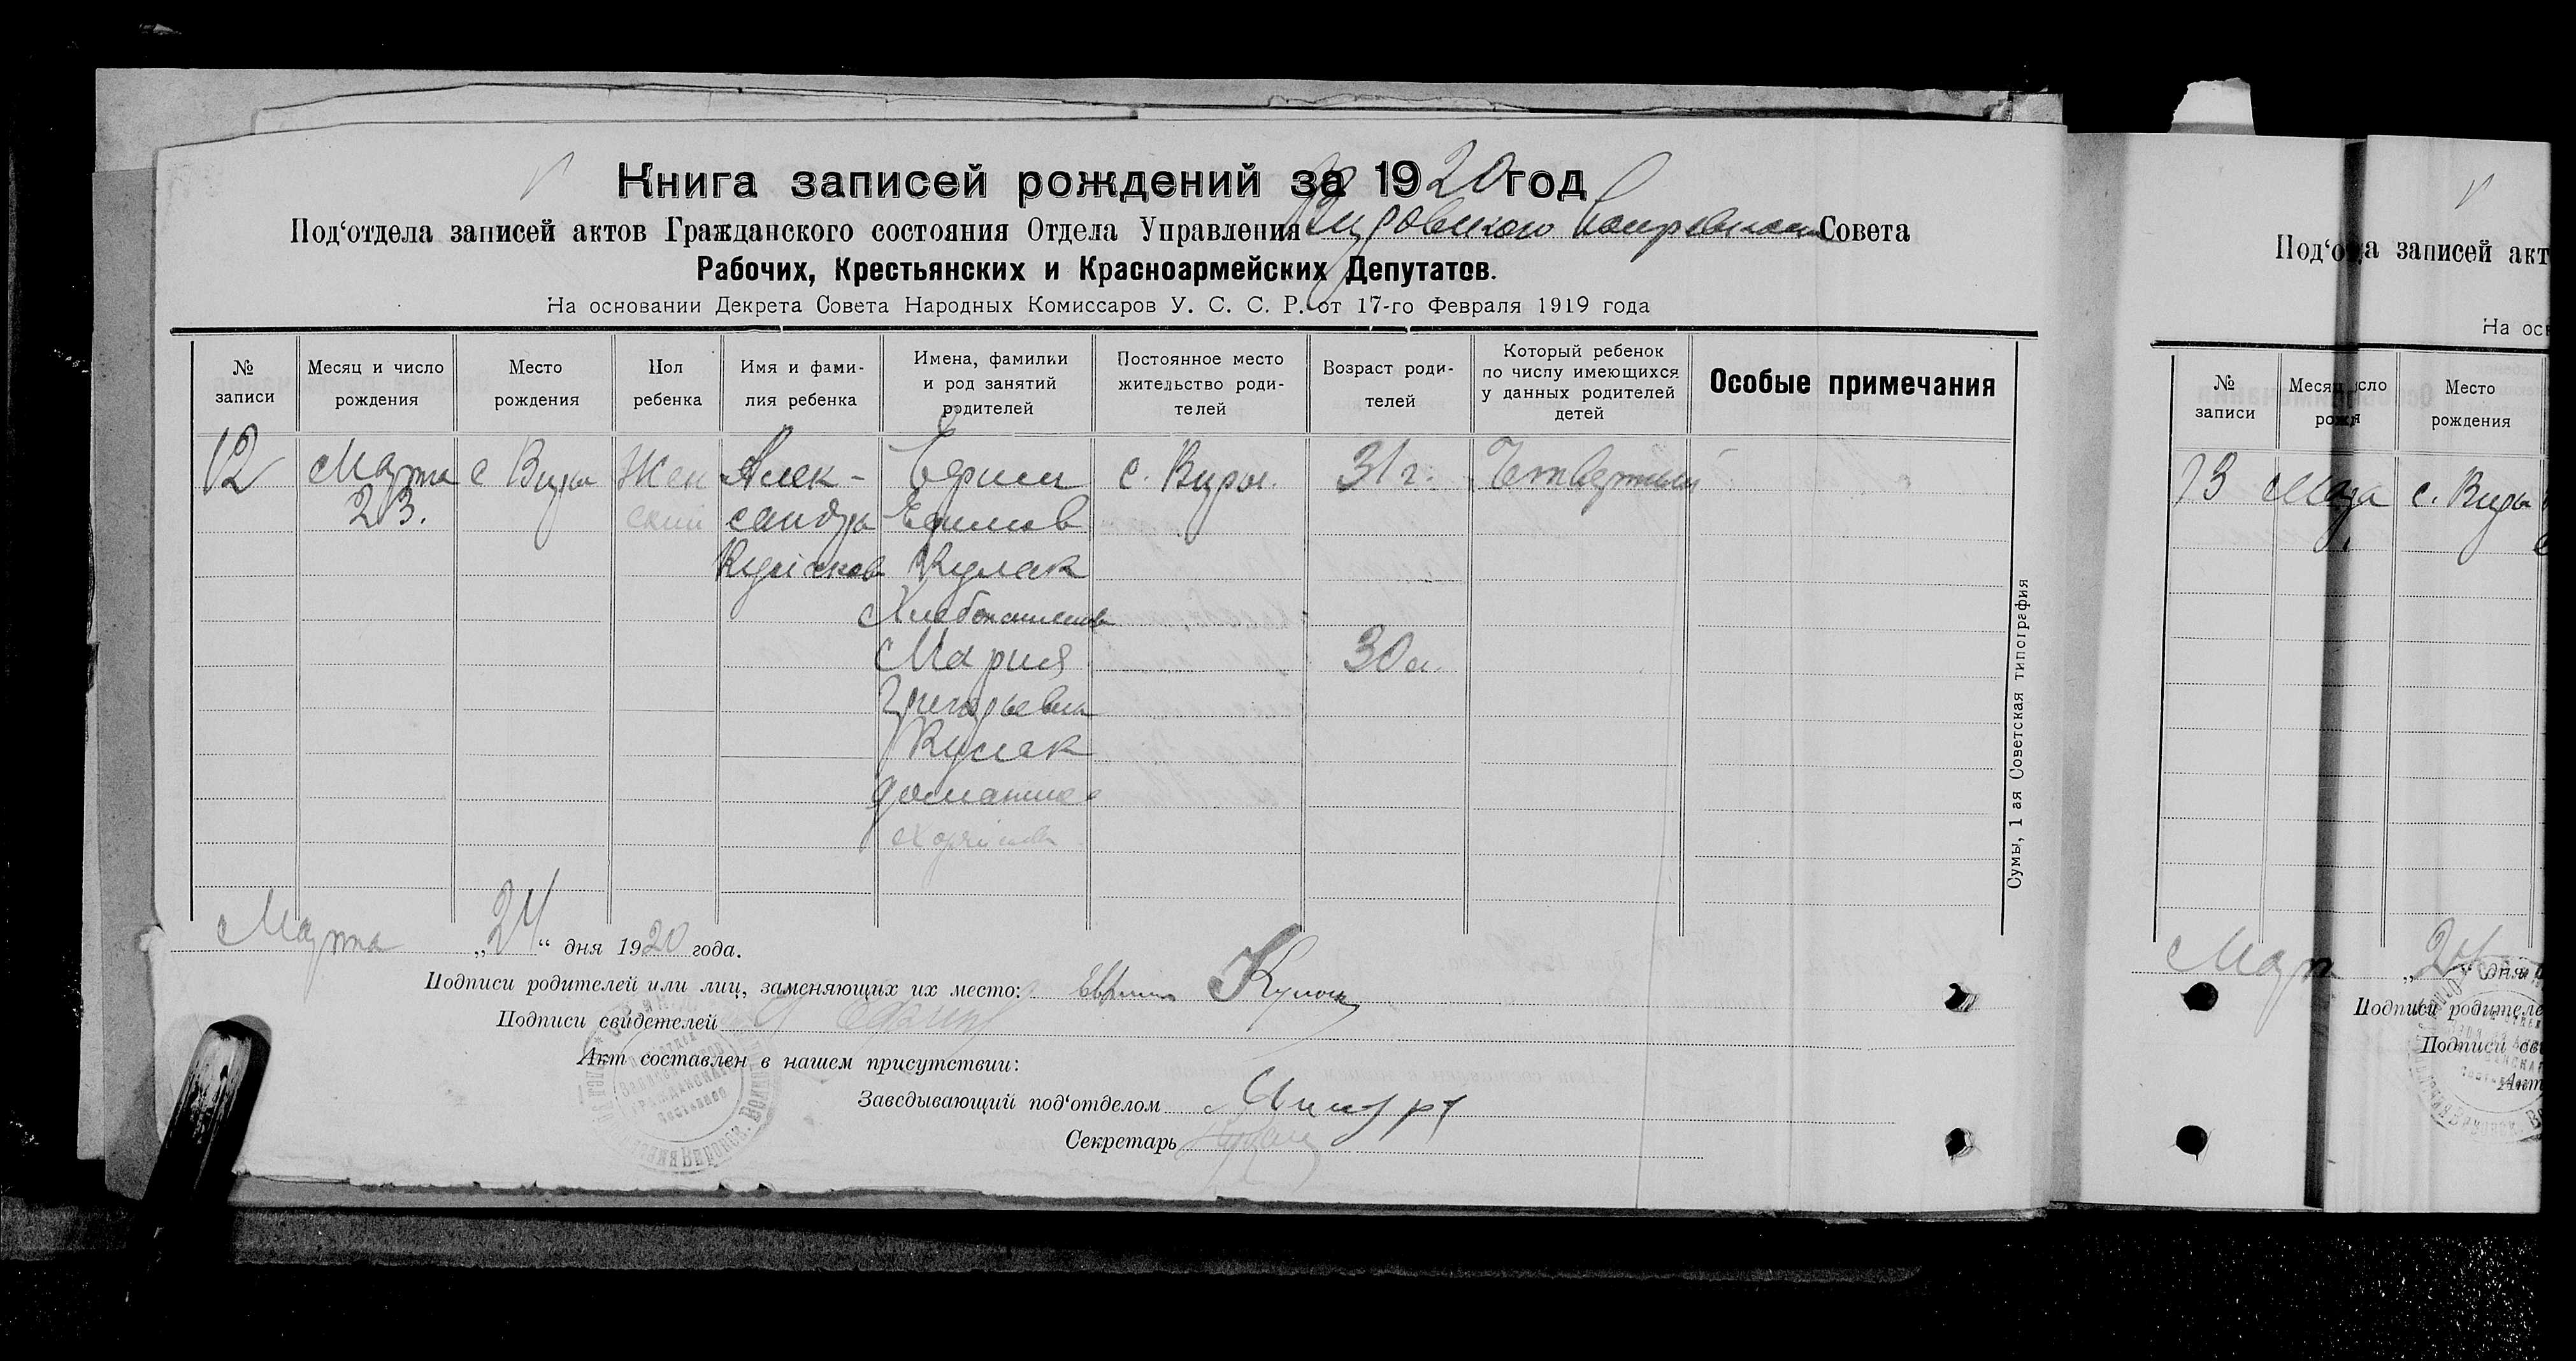 Книга записей рождений за 1920 год
Под‘отдела записей актов Гражданского состояния Отдела Управления Совета
Рабочих, Крестьянских и Красноармейских Депутатов.
На основании Декрета Совета Народных Комиссаров У. С. С. Р. от 17-го Февраля 1919 года
№ записи
Месяц и число рождения
Место рождения
Пол ребенка
Имя и фами-
лия ребенка
Имена, фамилии
и род занятий
родителей
Постоянное место
жительство роди-
телей
Возраст роди-
телей
Который ребенок
по числу имеющихся
у данных родителей
детей
Особые примечания
12
Марта
23.
с Виры
Жен
ский
Алек-
сандра
Ефим
Ефимов
Кулак
Мария
Григорьевна
Кулак
домашнее
с. Виры.
31 г.
30 л.
Четвертый
Сумы, 1 ая Советская типография
Марта „24“ дня 1920 года.
Подписи родителей или лиц, заменяющих их место: Ефим Кулак
Подписи свидетелей
Акт составлен в нашем присутствии:
Заведывающий под‘отделом
Секретарь
Под‘о а записей акт
На осн
№
записи
Место
рождения
13
с. Виры
Мар „24“ дня
Подписи родителе
Подписи сви
Акт